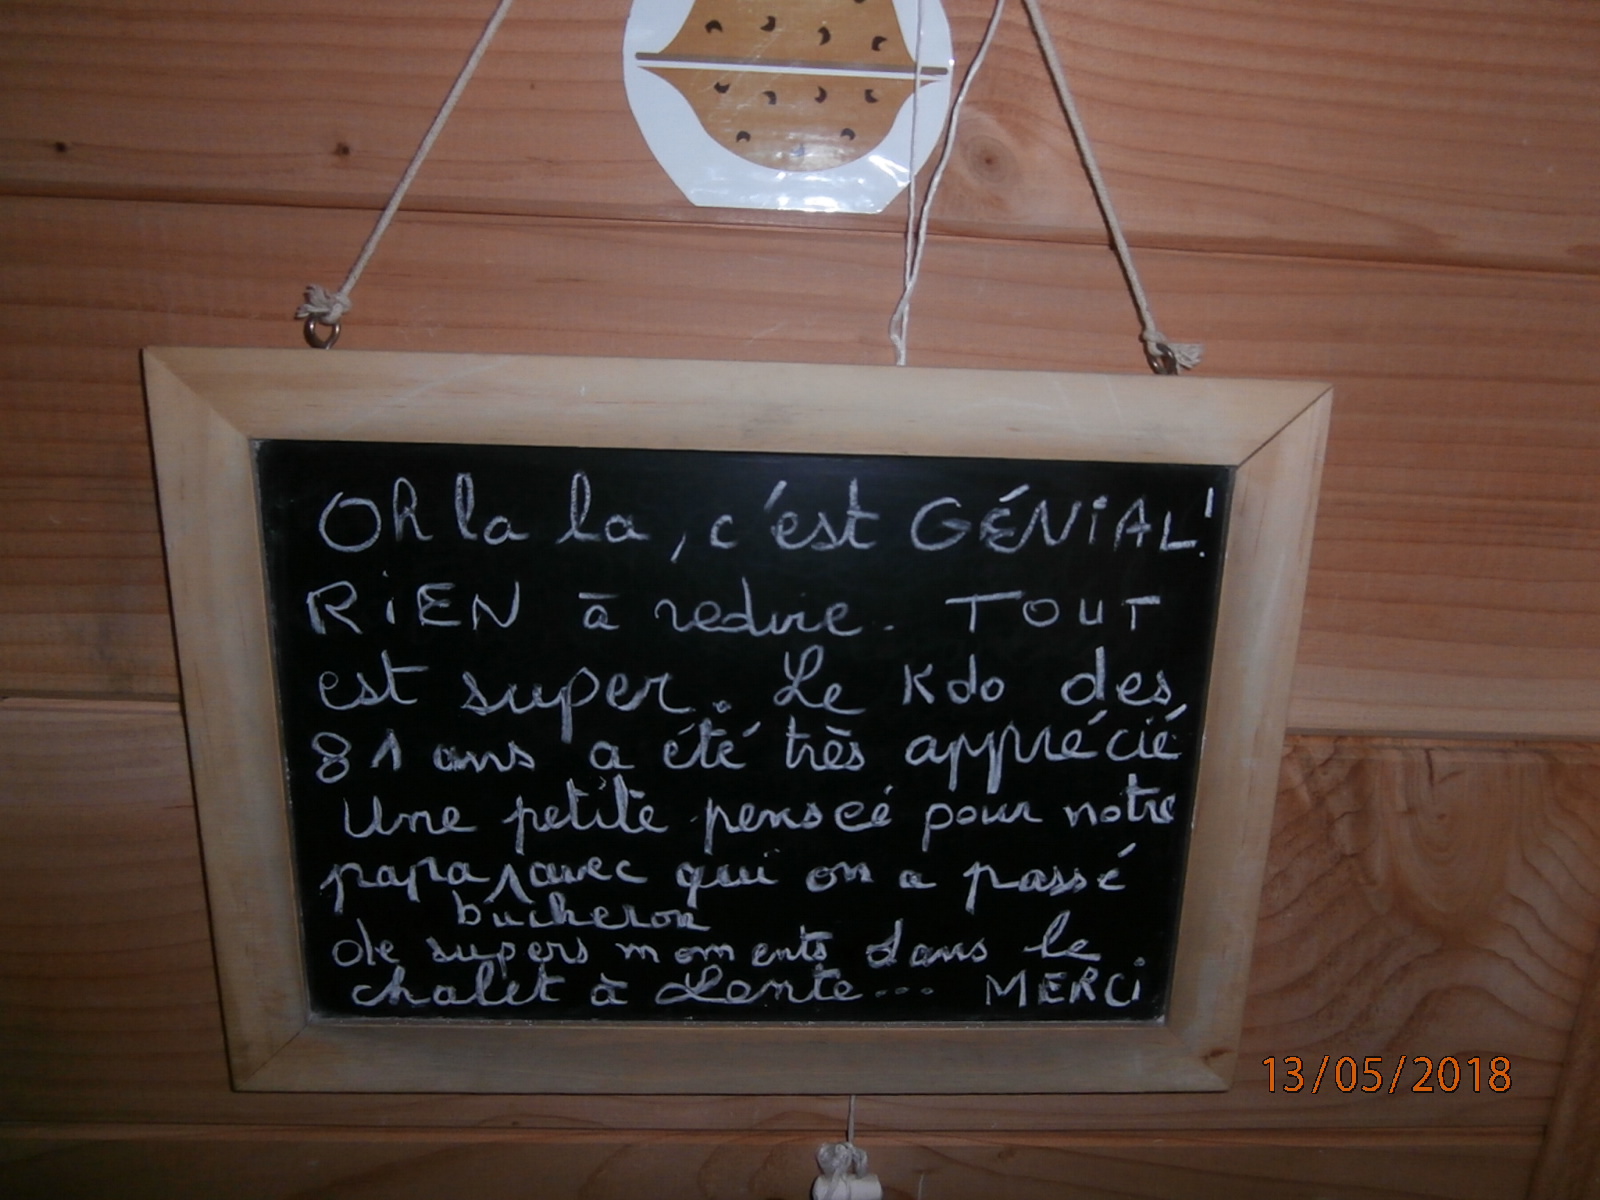 Oh la la, c'est GÉNiAL!
RiEN à redire. TOUT
est super. Le Kdo des
81 ans a été très apprécié
Une petite penseé pour notre
papa ⋀ avec qui on a passé
bucheron
de supers moments dans le
chalet à Lente... MERCi
13/05/2018